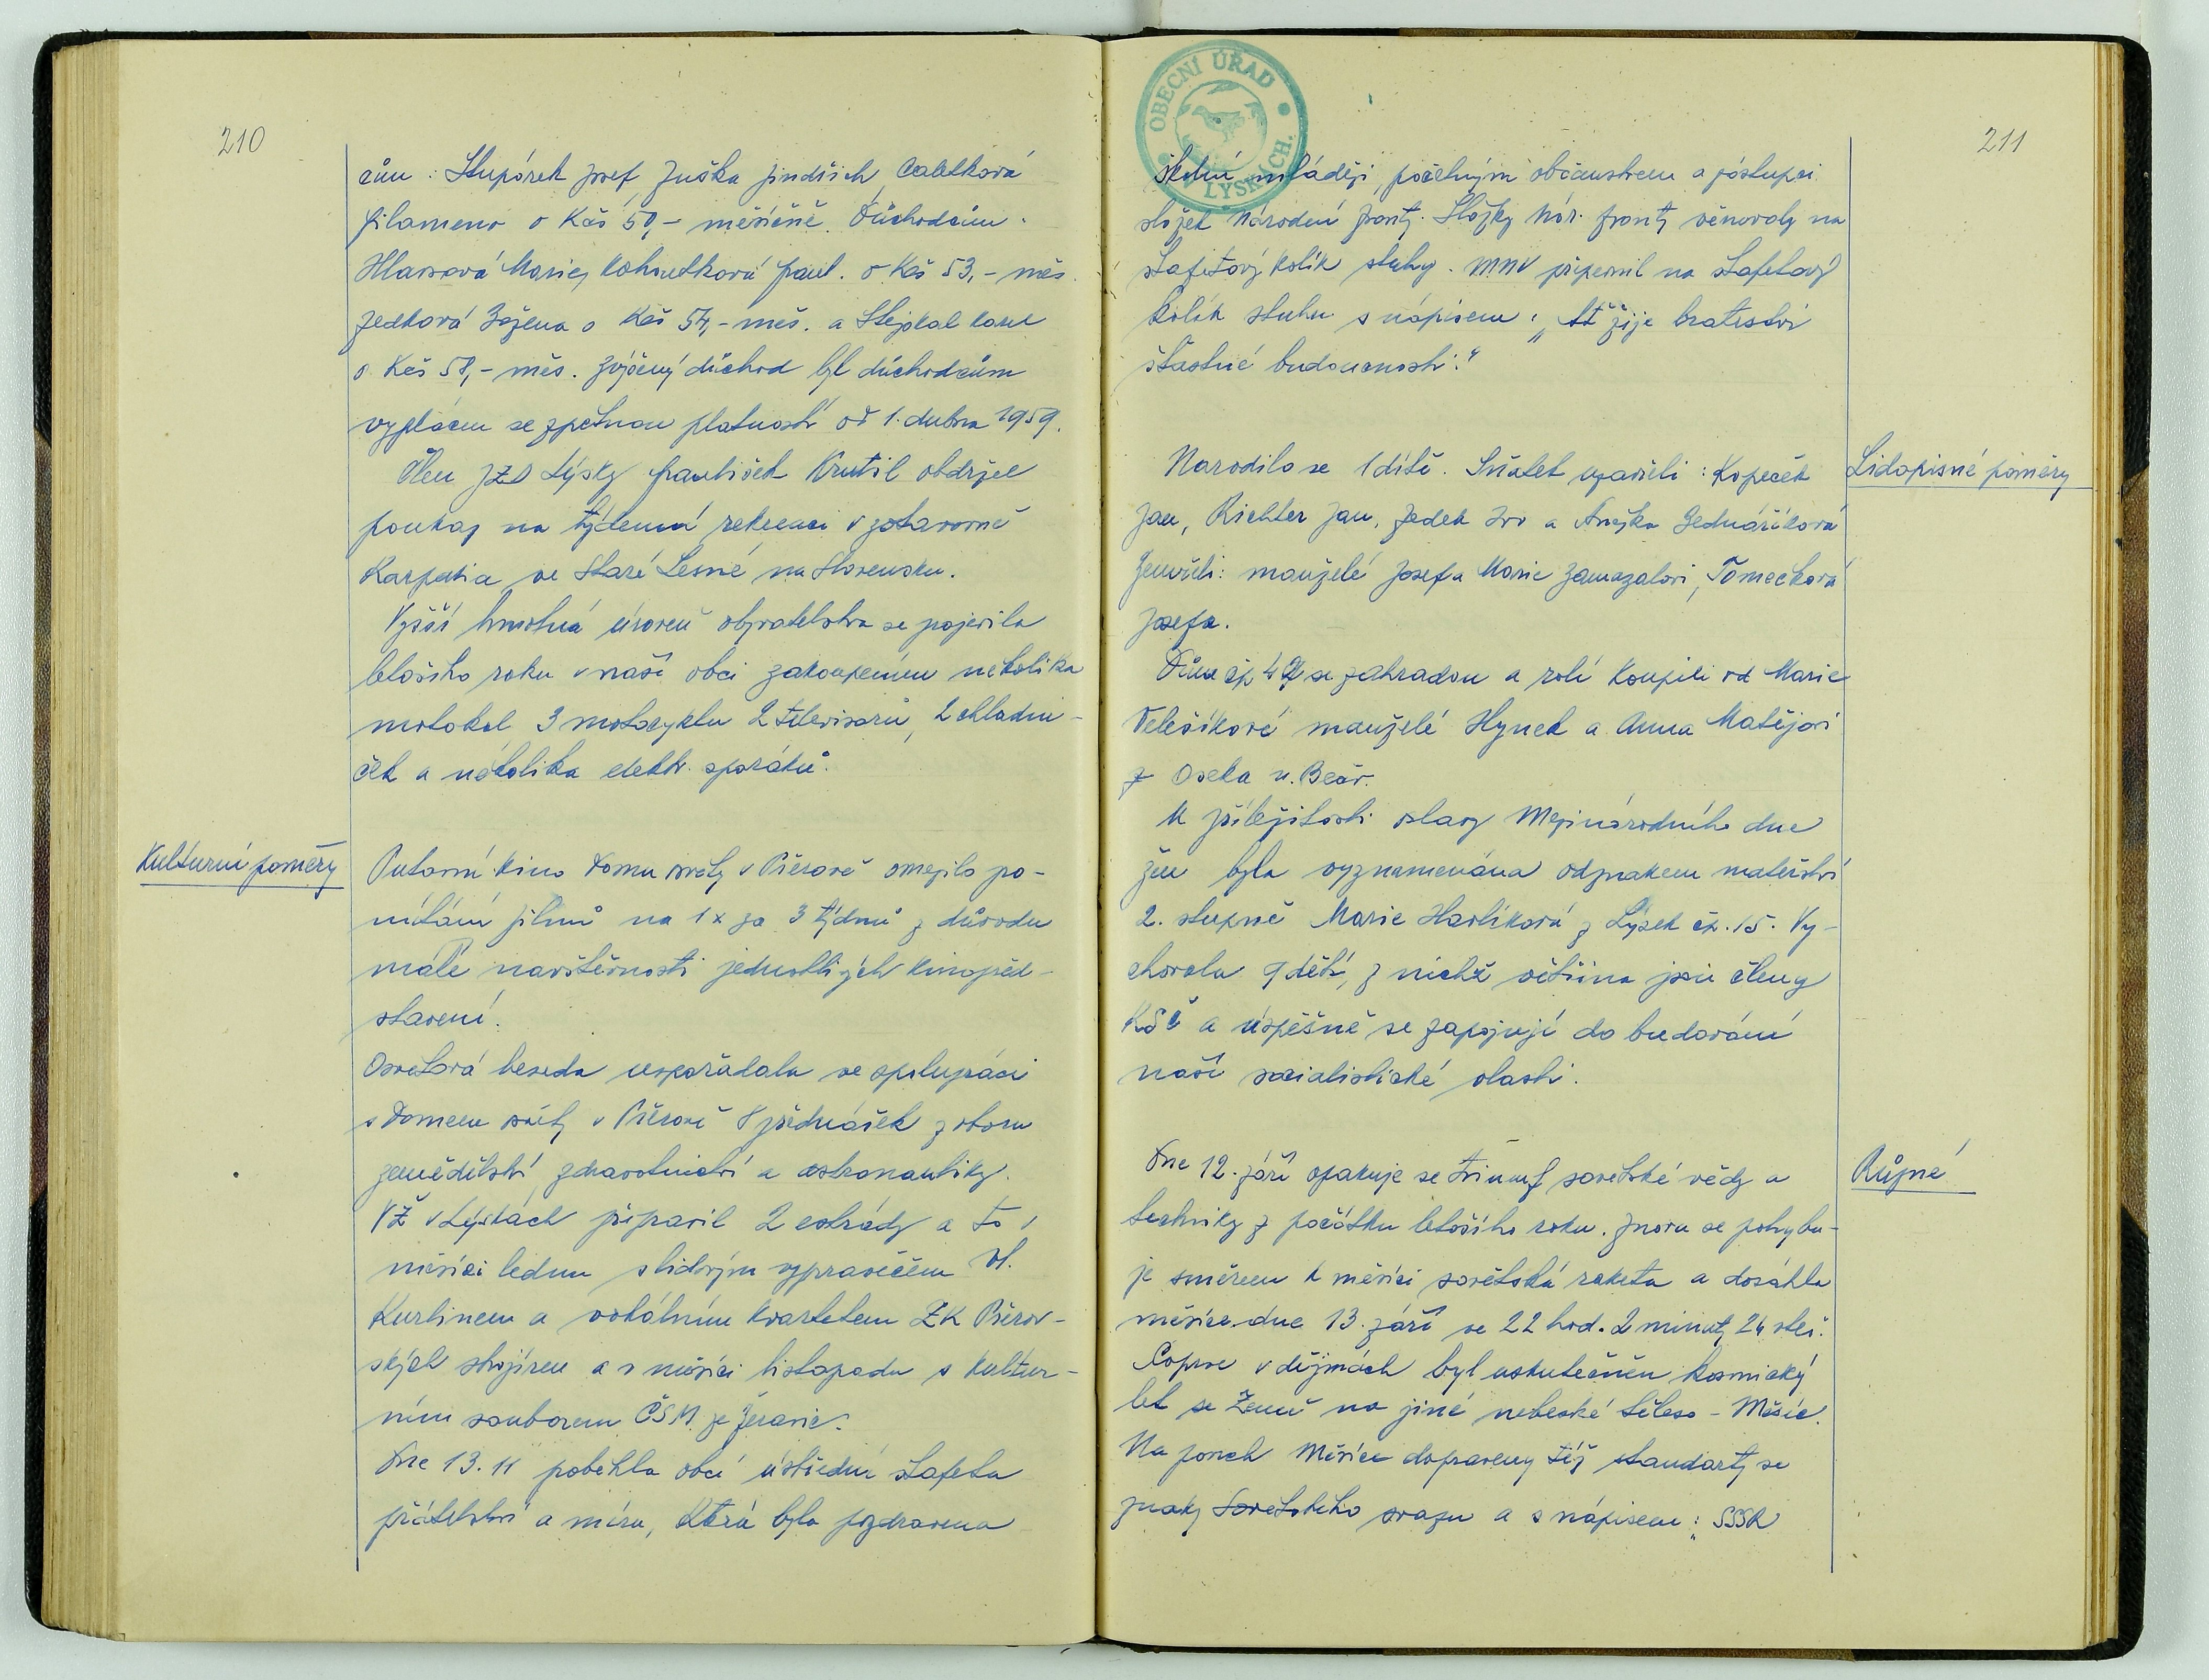 210
cům: Stupárek Josef, Juška Jindřich, Caletková
Filomena o Kčs 50,- měsíčně. Důchodcům:
Hlavsová Marie, Kohoutková Frant. o Kčs 53,- měs.
Zedková Božena o Kčs 54,- měs. a Stejskal Karel
o Kčs 58,- měs. Zvýšený důchod byl důchodcům
vyplácen se zpětnou platností od 1. dubna 1959.
Člen JZD Lýsky František Krutil obdržel
poukaz na týdenní rekreaci v zotavovně
Karpatia ve Staré Lesné na Slovensku.
Vyšší hmotná úroveň obyvatelstva se projevila
letošího roku v naší obci zakoupením několika
motokol 3 motocyklu 2 televisorů, 2 chladni-
ček a několika elektr. sporáků.
Kulturní poměry
Putovní kino Domu osvěty v Přerově omezilo po-
mítání filmů na 1x za 3 týdnů z důvodu
malé navštěvnosti jednotlivých kinopřed-
stavení.
Osvětová beseda uspořádala ve spolupráci
s Domem osvěty v Přerově 8 přednášek z oboru
zemědělství, zdravotnictví a astronautiky.
VŽ v Lýskách připravil 2 estrády a to v
měsíci lednu s lidovým vypravěčem Vl.
Kurlinem a vokálním kvartetem ZK Přerov-
ských strojíren a v měsíci listopadu s kultur-
ním souborem ČSM ze Žeravic.
Dne 13. 11 poběhla obcí ústřední štafeta
přátelství a míru, která byla pozdravena
OBECNÍ ÚŘAD
LÝSKÁCH
211
školní mládeží, početným občanstvem a zástupci
složek Národní fronty. Složky Nár. fronty věnovaly na
štafetový kolík stuhy. MNV připevnil na štafetový
kolík stuhu s nápisem: „Ať žije bratrství
šťastné budoucnosti."
Lidopisné poměry
Narodilo se 1 dítě. Sňatek uzavřeli: Kopeček
Jan, Richter Jan, Zedek Ivo a Anežka Bednaříková
Zemřeli: manželé Josef a Marie Zamazalovi, Tomečková
Josefa.
Dům čp 49 se zahradou a rolí koupili od Marie
Velešíkové manželé Hynek a Anna Matějovi
z Oseka n. Bečv.
U příležitosti oslavy Mezinárodního dne
žen byla vyznamenána odznakem mateřství
2. stupně Marie Havlíková z Lýsek čp. 15. Vy-
chovala 9 dětí, z nichž většina jsou členy
KSČ a úspěšně se zapojují do budování
naší socialistické vlasti.
Různé
Dne 12. září opakuje se triumf sovětské vědy a
techniky z počátku letošího roku. Znovu se pohybu-
je směrem k měsíci sovětská raketa a dosáhla
měsíce dne 13. září ve 22 hod. 2 minuty 24 vteř.
Poprve v dějinách byl uskutečněn kosmický
let se Země na jiné nebeské těleso - Měsíc.
Na povrch Měsíce dopraveny též standarty se
znaky Sovětského svazu a s nápisem: „SSSR